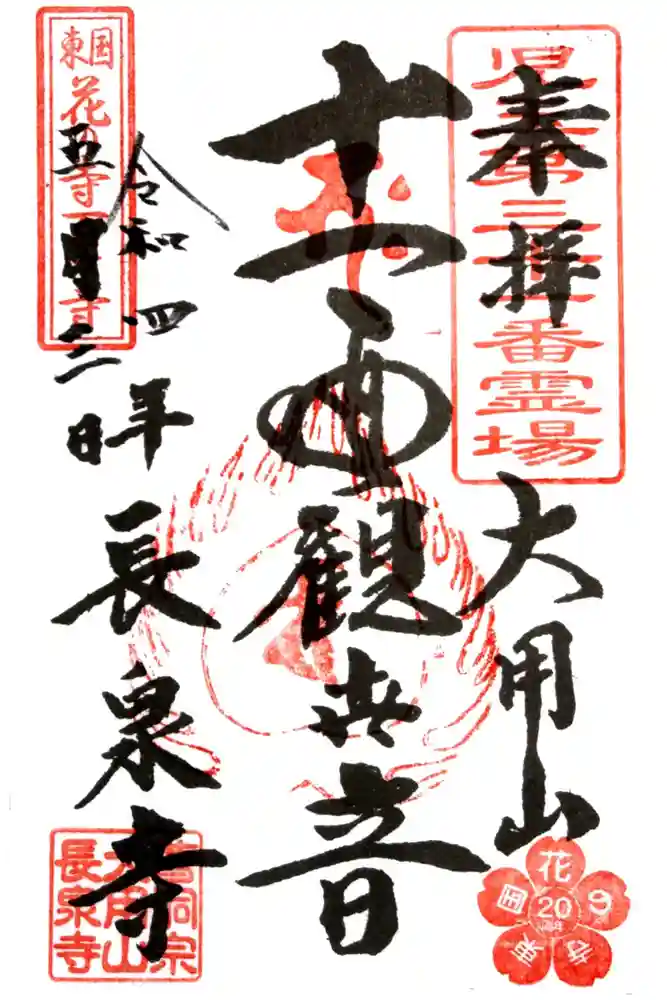 奉拝
児玉第三十二番霊場
大用山
十一面観世音
令和四年
五月三日
長泉寺
東国
花の寺百ヶ寺
曹洞宗
大用山
長泉寺
東国花の寺
20
周年